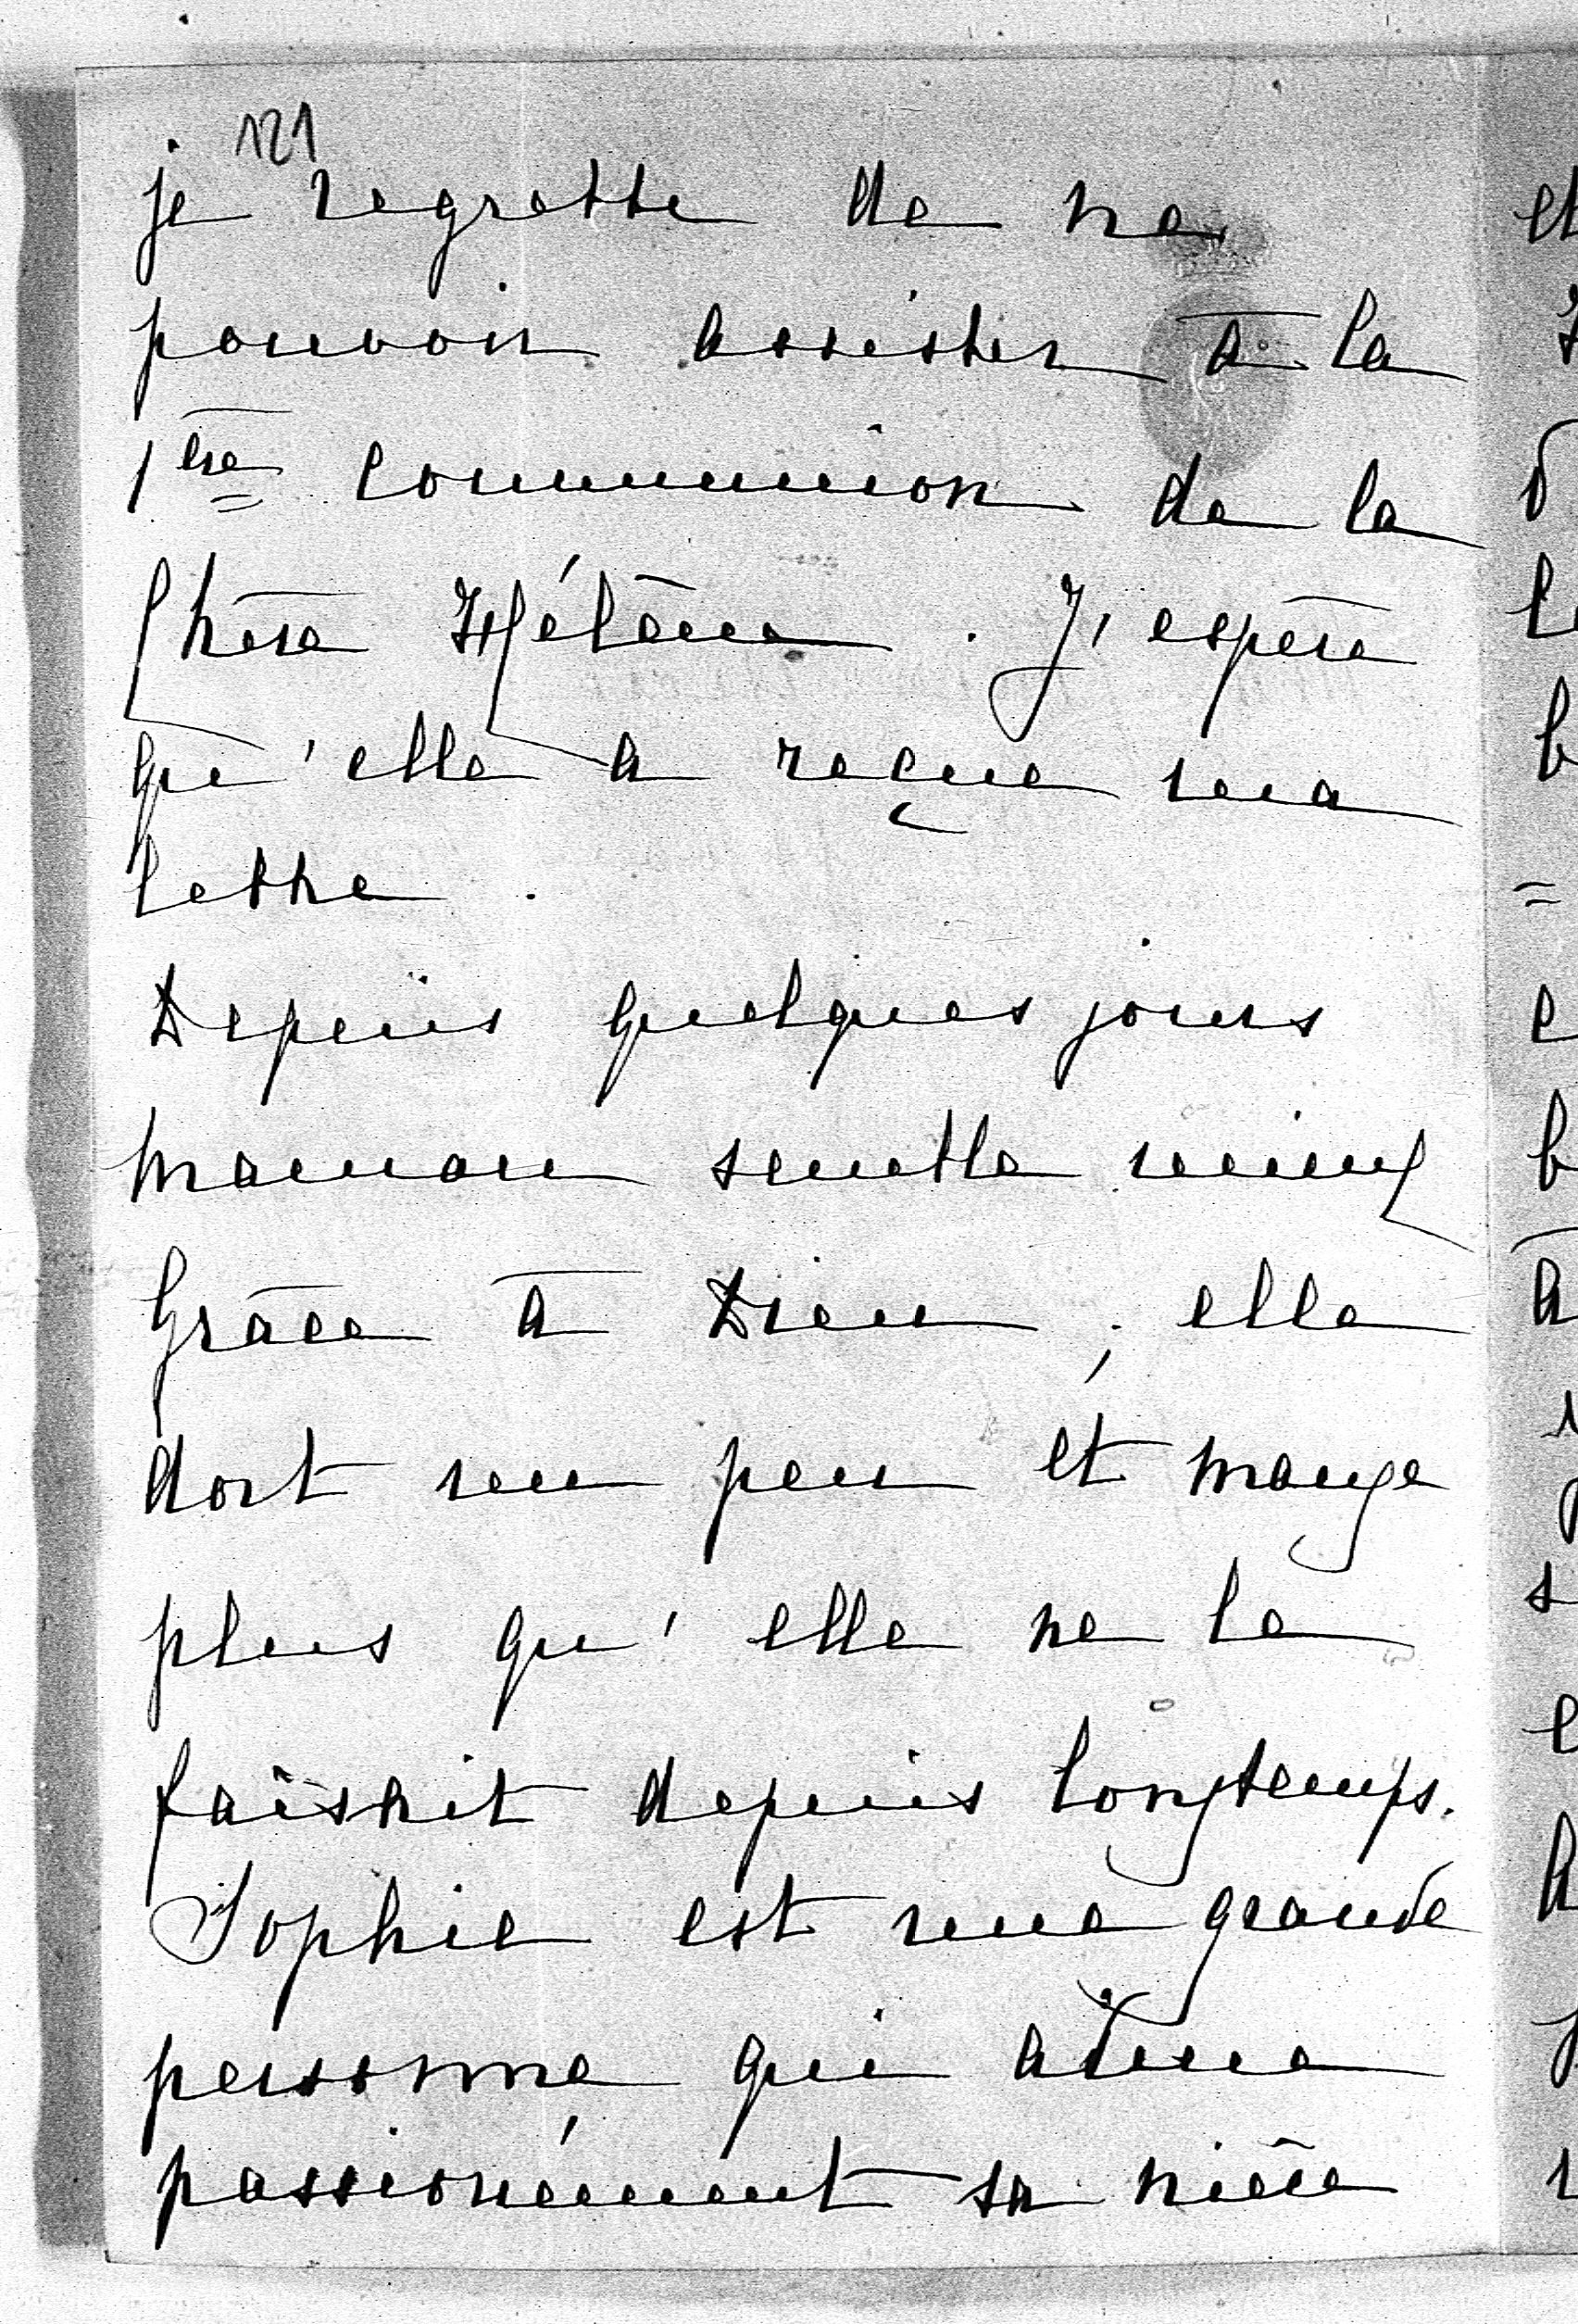 121
je regrette de ne
pouvoir assister à la
1ère communion de la
Chère Hélène. J'espère
qu'elle a reçue ma
lettre.
Depuis quelques jours
maman semble mieux
grâce à Dieu, elle
dort un peu et mange
plus qu'elle ne le
faisait depuis longtemps.
Sophie est une grande
personne qui adore
passionément sa nièce